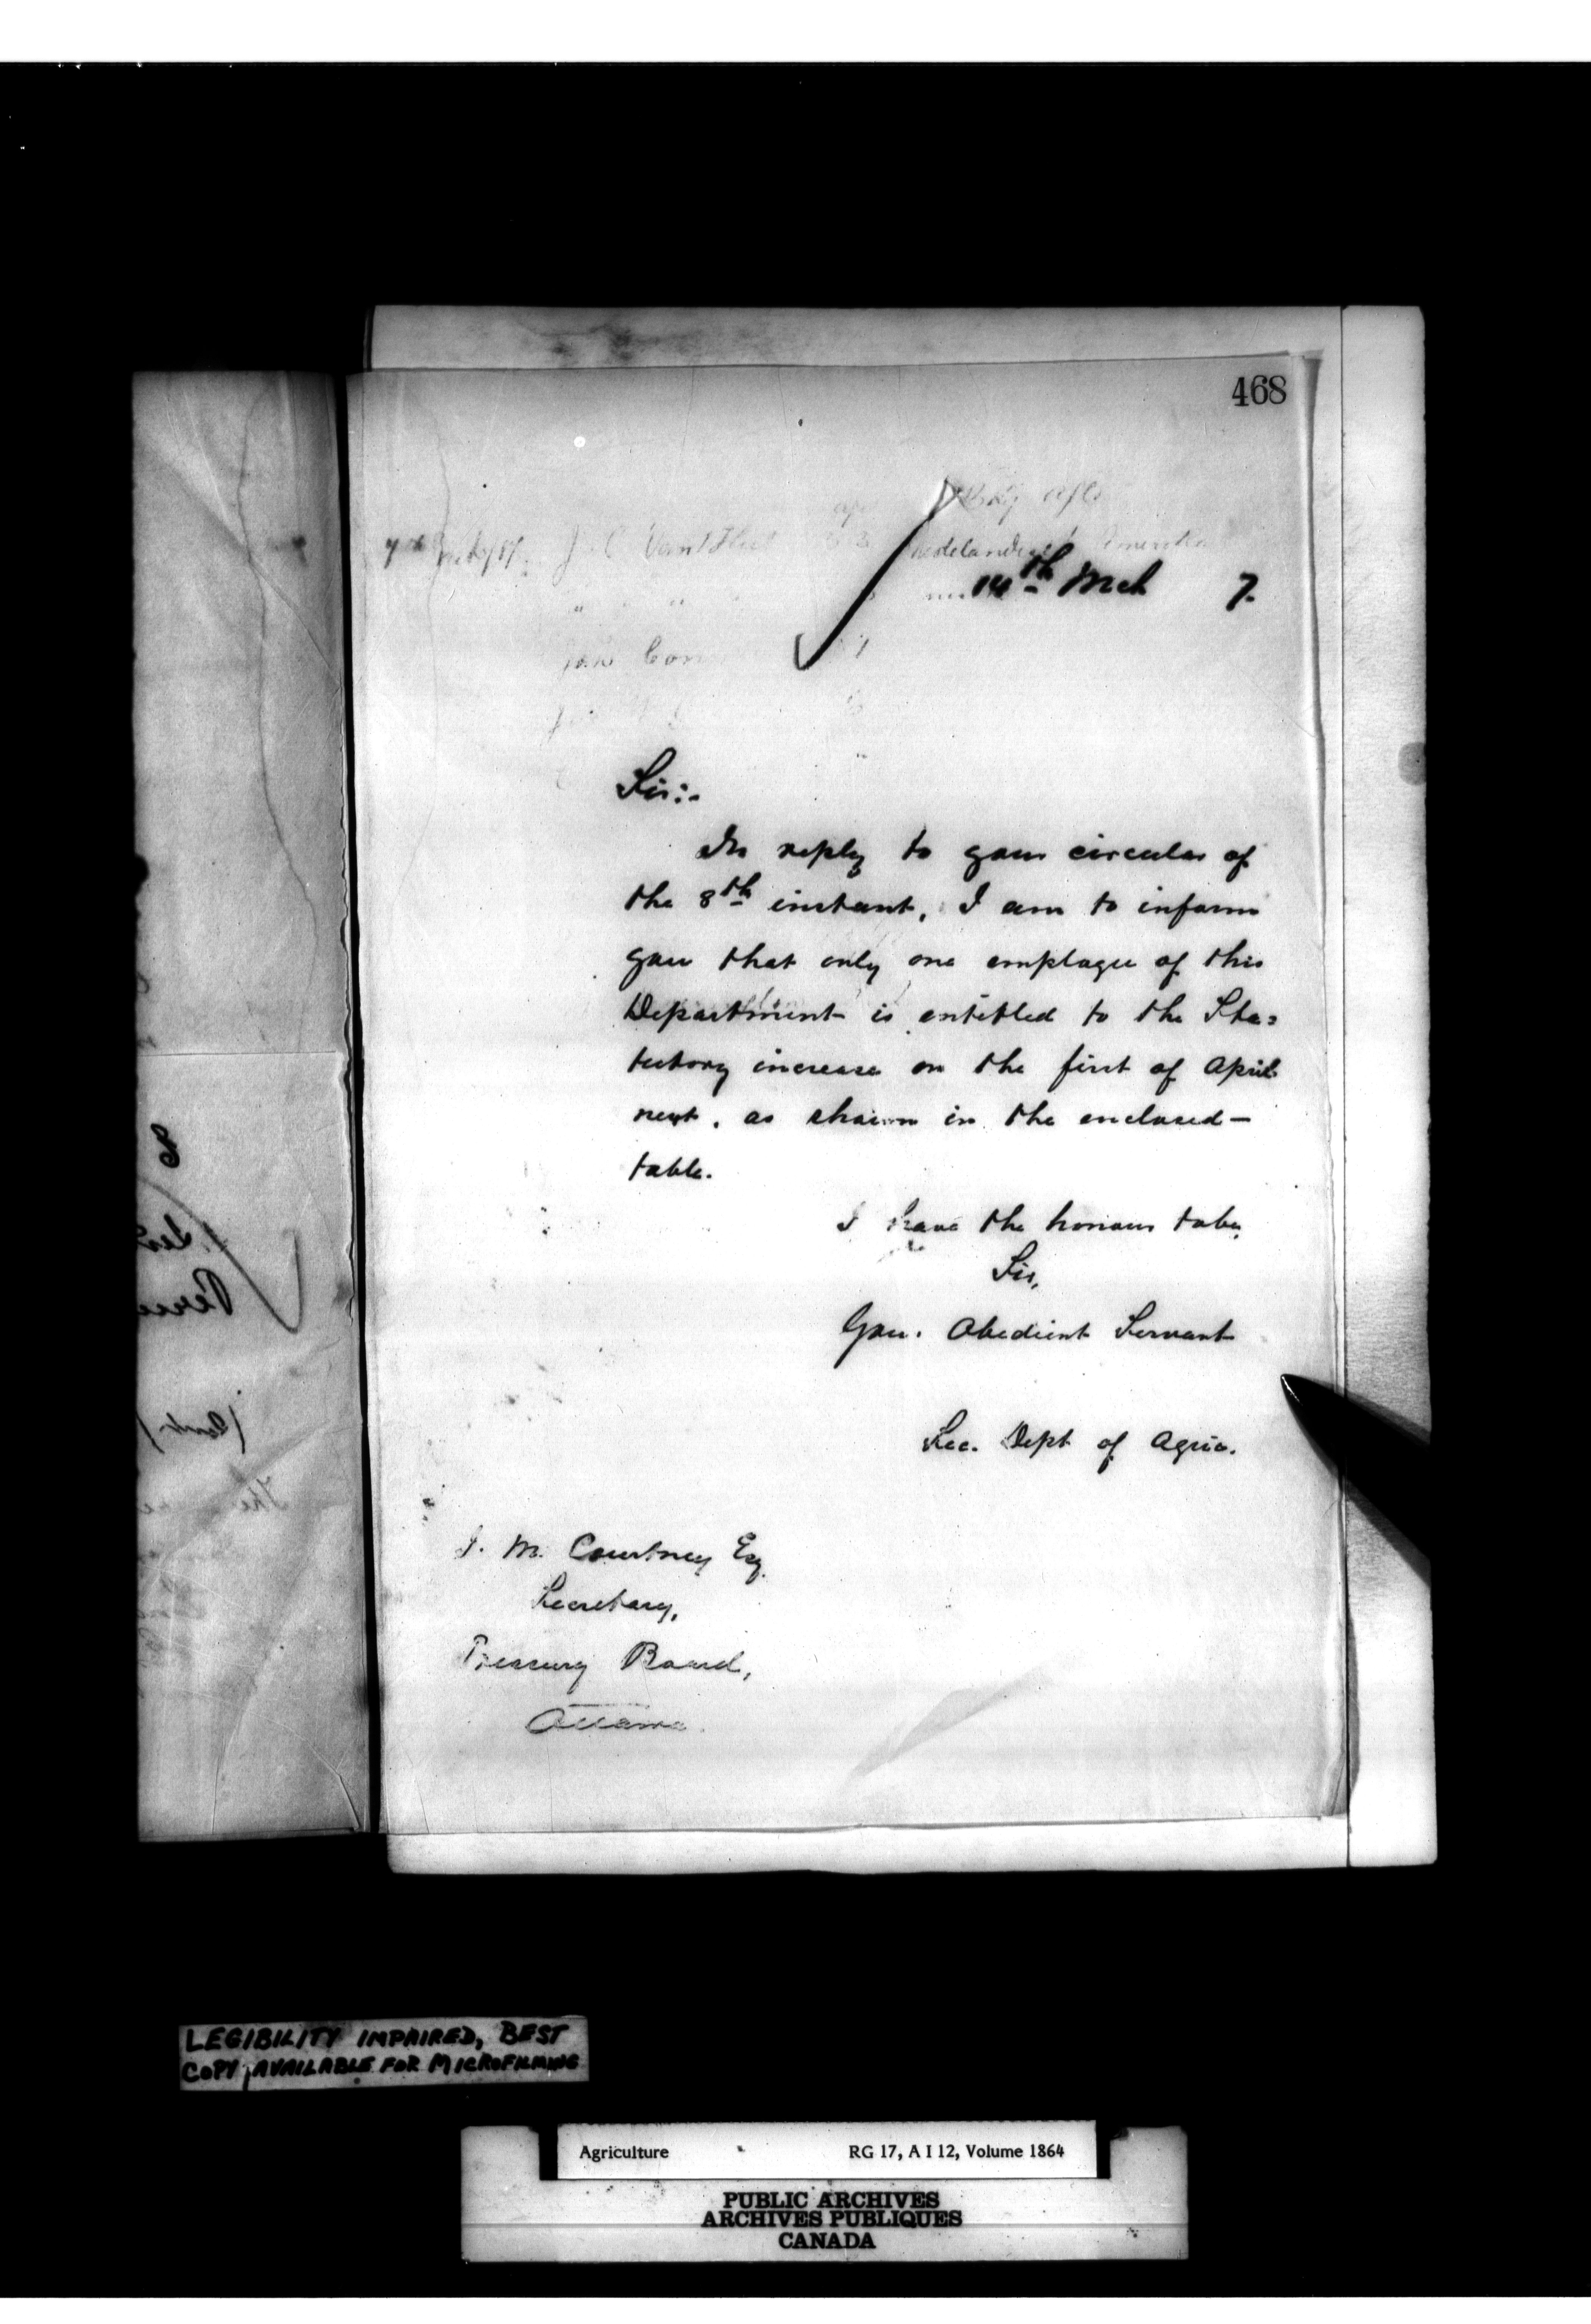 468
J. C. Vant Hul
14th Mch 7.
Sir:-
In reply to your circular of
the 8th instant, I am to inform
you that only one employee of this
Department is entitled to the Sta=
tutory increase on the first of April
next, as shown in the enclosed—
table.
I have the honour to be,
Sir,
Your Obedient Servant
Sec. Dept of Agric.
J. M. Courtney Esq.
Secretary,
Treasury Board,
Ottawa.
LEGIBILITY IMPAIRED, BEST
COPY AVAILABLE FOR MICROFILMING
Agriculture RG 17, A I 12, Volume 1864
PUBLIC ARCHIVES
ARCHIVES PUBLIQUES
CANADA